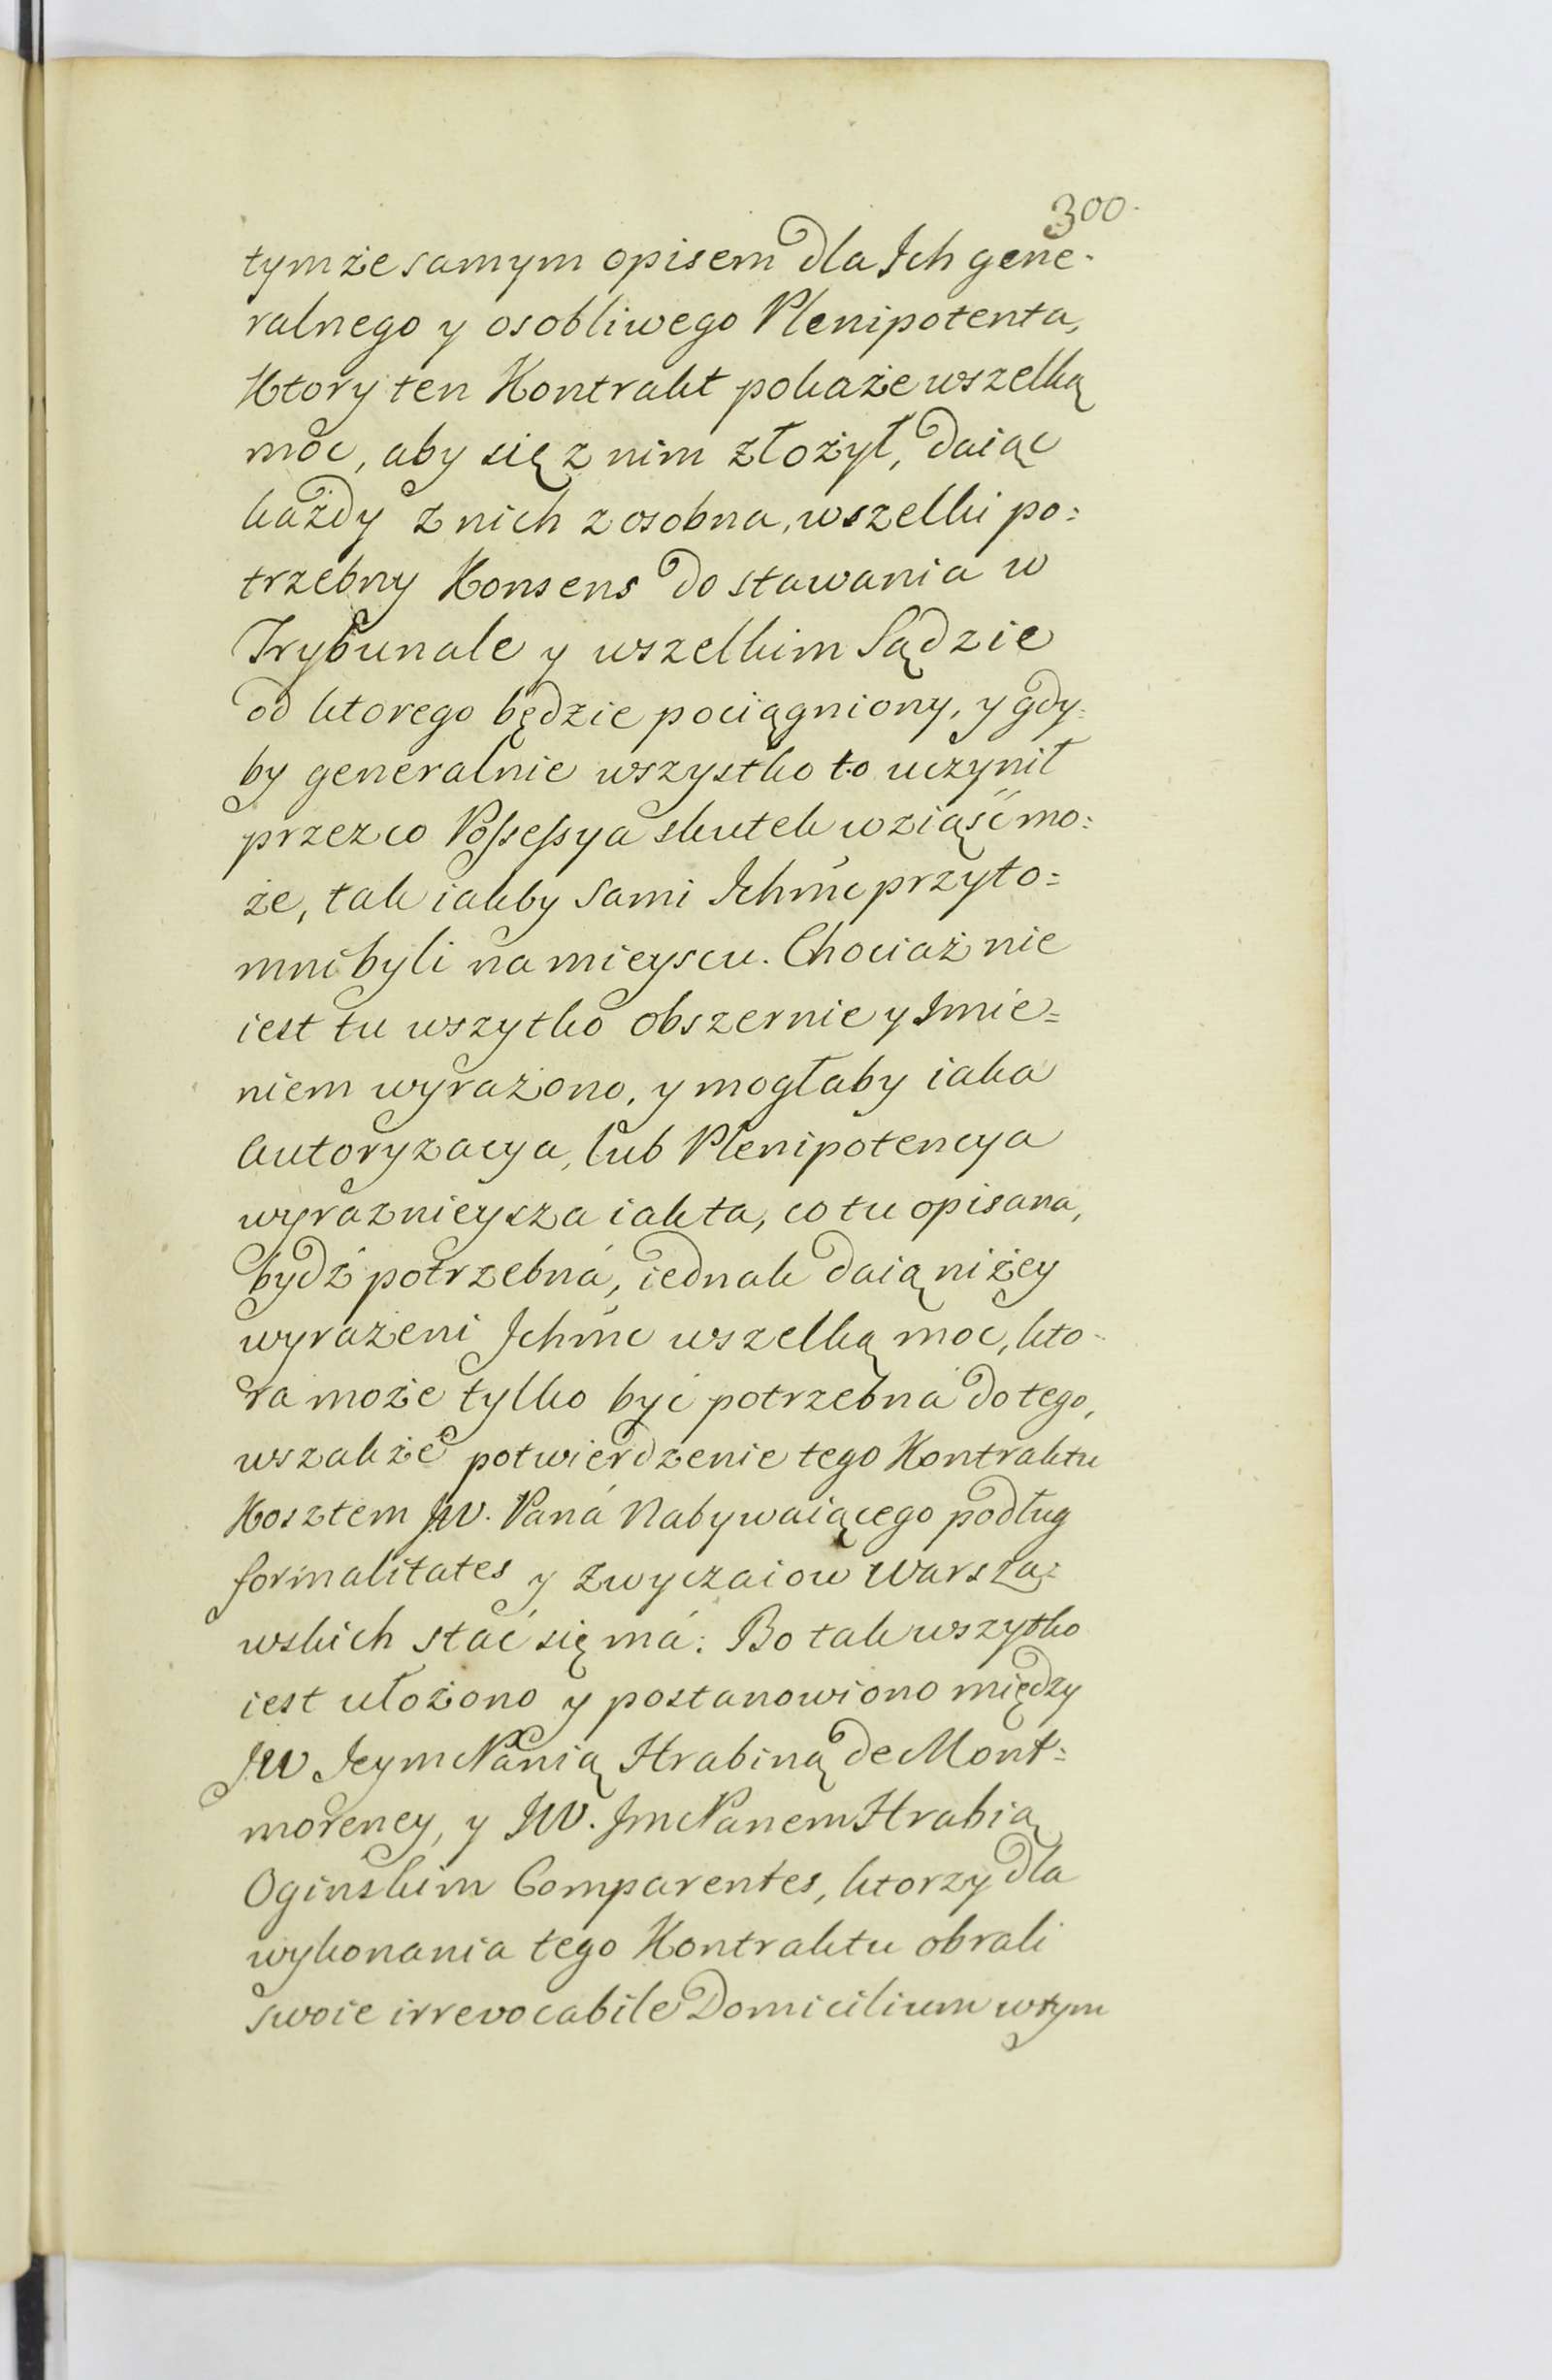 300.
tymże samym opisem dla Ich gene-
ralnego y osobliwego Plenipotenta,
Ktory ten Kontrakt pokaże wszelką
moc, aby się z nim złożył, daiąc
każdy z nich zosobna, wszelki po:
trzebny Konsens do stawania w
Trybunale y wszelkim Sądzie
od ktorego będzie pociągniony, y gdy:
by generalnie wszystko to uczynił
przez co Possessya skutek wziąść mo:
że, tak iakby Sami Ichmć przyto=
mni byli na mieyscu. Chociaż nie
iest tu wszytko obszernie y Imie=
niem wyrażono, y mogłaby iaka
Autoryzacya, lub Plenipotencya
wyraznieysza iak ta, co tu opisana,
bydź potrzebná, iednak daią niżey
wyrażeni Ichmć wszelką moc, kto-
ra może tylko być potrzebná do tego,
wszakże potwierdzenie tego Kontraktu
Kosztem JW. Paná Nabywaiącego podług
formalitates y zwyczaiow Warsza:
wskich stać się má: Bo tak wszytko
iest ułożono y postanowiono między
JW Jeymc Panią Hrabiną de Mont=
morency, y JW. Jmc Panem Hrabią
Oginskim Comparentes, ktorzy dla
wykonania tego Kontraktu obrali
swoie irrevocabile Domicilium w tym